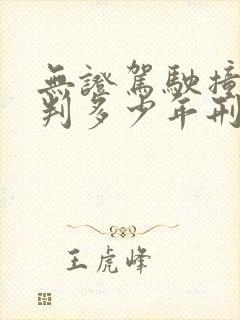 無證駕駛撞
判多少年刑
王虎峰